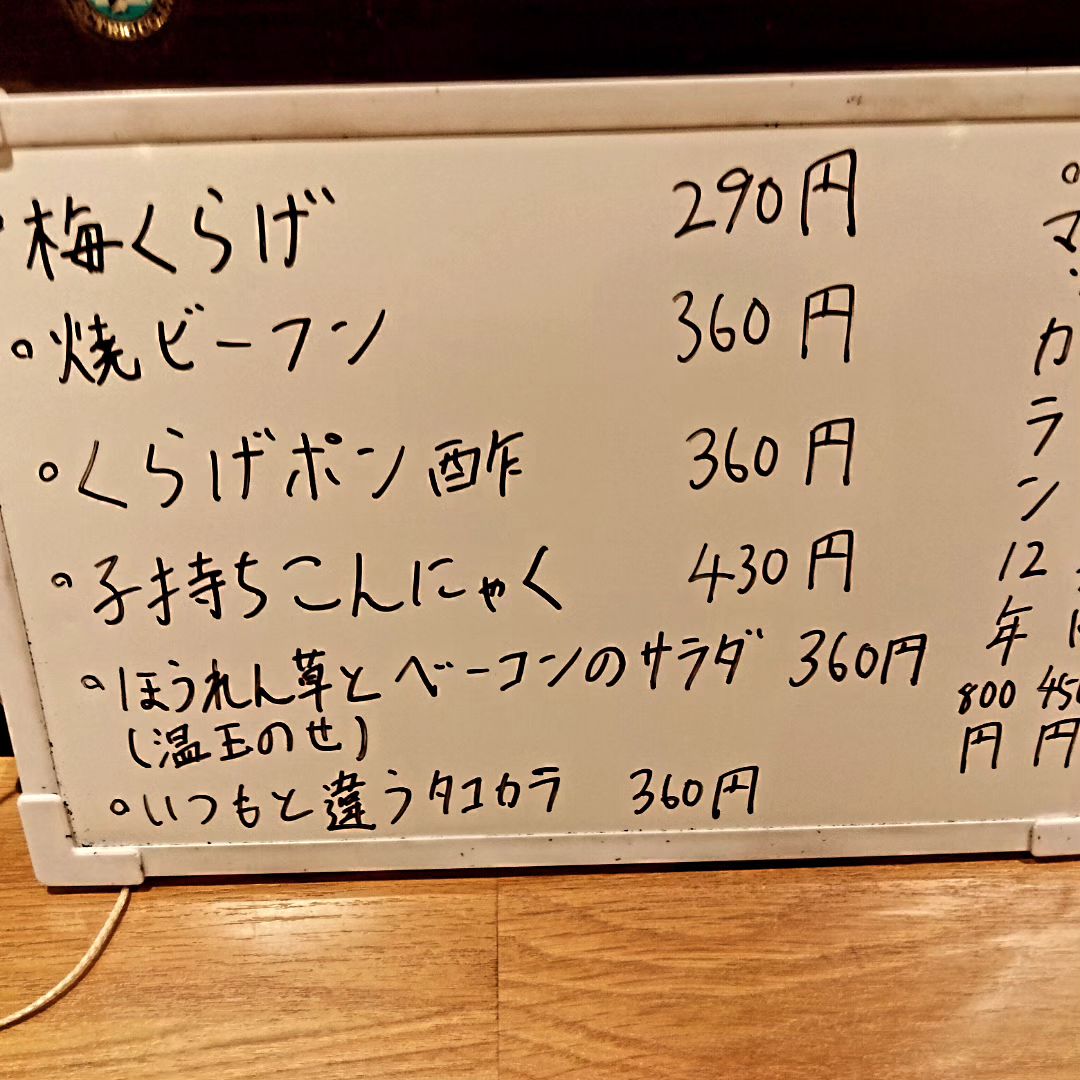 ・梅くらげ 290円
・焼ビーフン 360円
・くらげポン酢 360円
・子持ちこんにゃく 430円
・ほうれん草とベーコンのサラダ 360円
(温玉のせ)
・いつもと違うタコカラ 360円
・マッカラン12年 800円